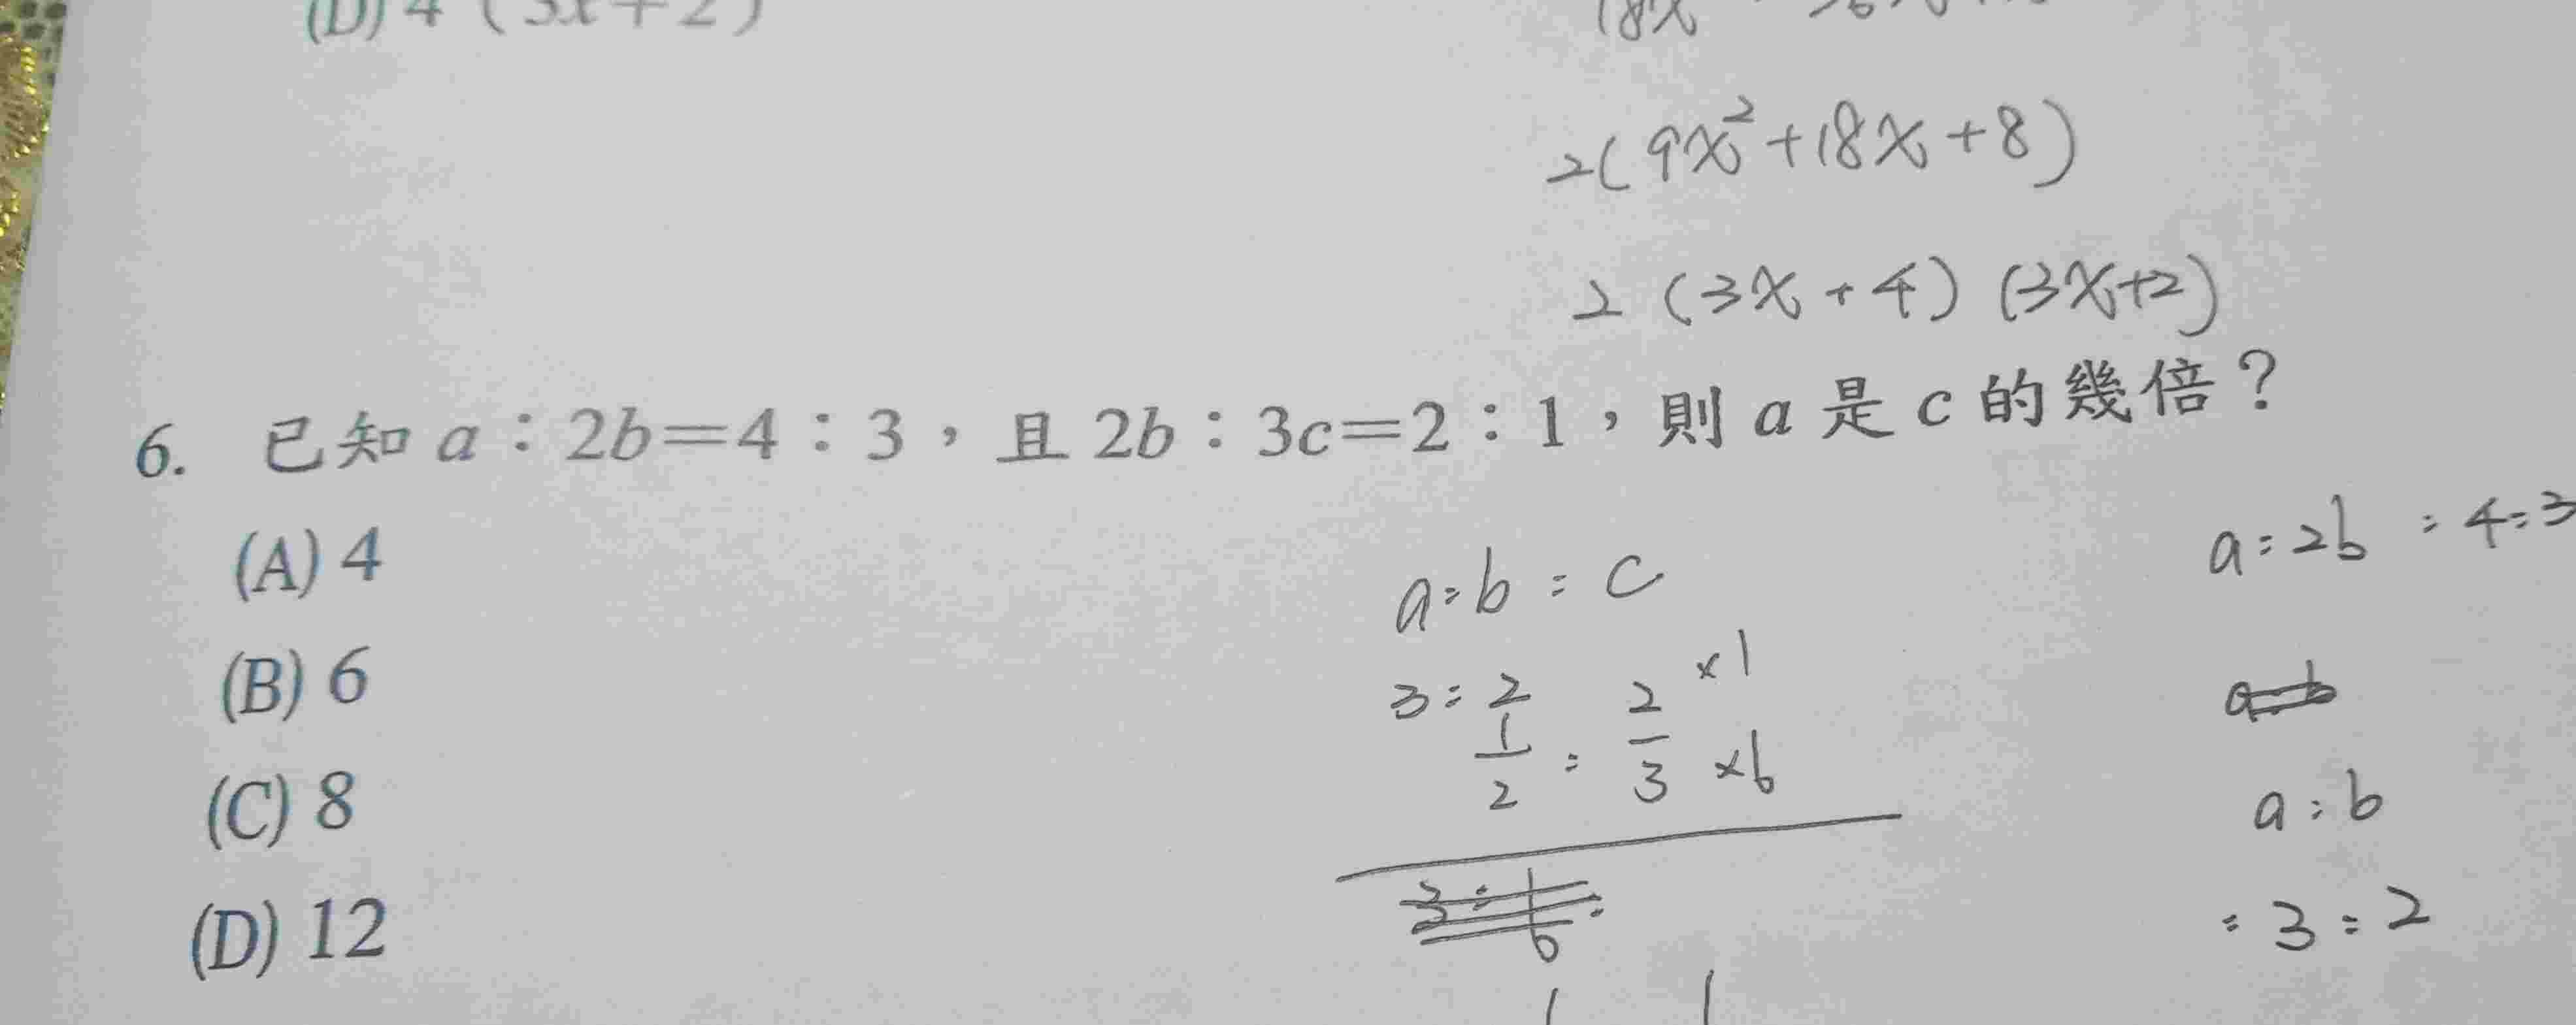 (D) 4 (3x+2)
18x
2(9x²+18x+8)
2 (3x+4) (3x+2)
6. 已知 a：2b=4：3，且 2b：3c=2：1，則 a 是 c 的幾倍？
(A) 4
(B) 6
(C) 8
(D) 12
a:b:c
3:2
1/2 : 2/3 ×1 ×6
a:2b:4:3
a:b
=3:2